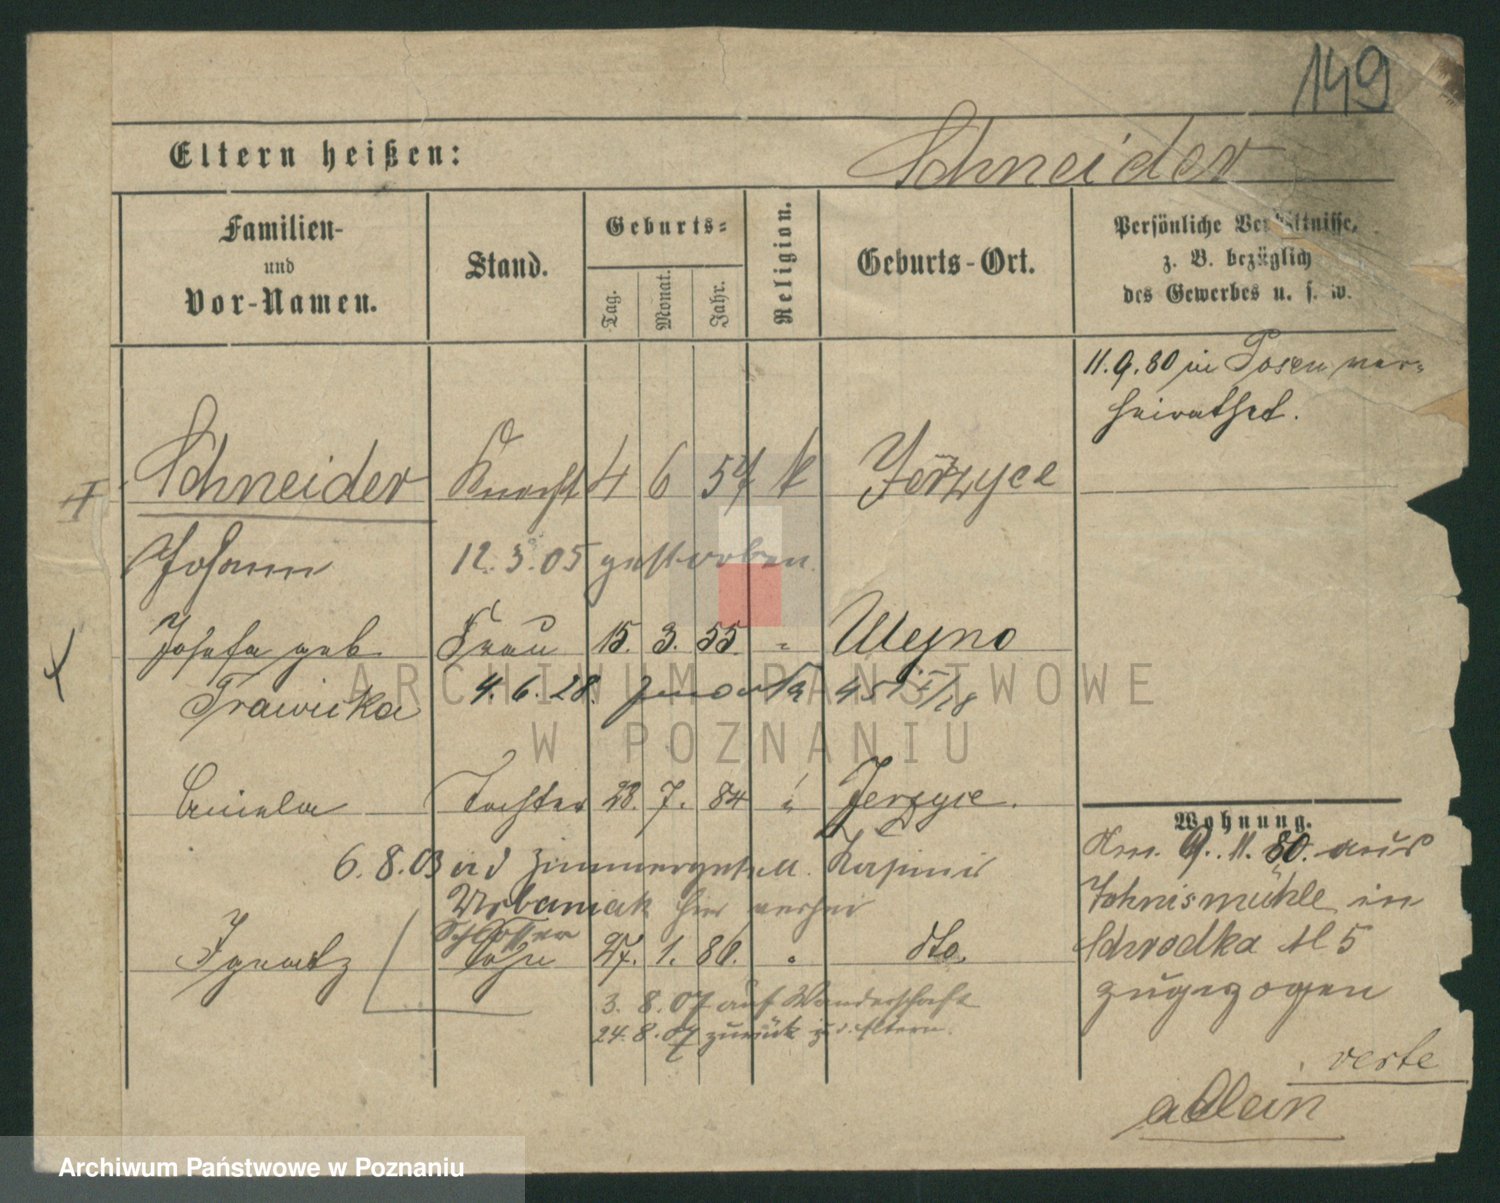 149
Eltern heißen:
Schneider
Familien-
und
Vor-Namen.
Stand.
Geburts-
Tag.
Monat.
Jahr.
Religion.
Geburts-Ort.
Persönliche Verhältnisse,
z. B. bezüglich
des Gewerbes u. s. w.
11.9.80 in Posen ver-
heirathet.
Schneider Knecht 4 6 57 k Jerzyce
Johann 12.3.05 gestorben.
Josefa geb. Frau 15. 3. 55. " Ulejno
Trawicka 4.6.28. zmarła
Aniela Tochter 23. 7. 84 " Jerzyce.
6.8.03 Kasimir
Urbaniak hier
Schlosser
Ignatz Sohn 27. 1. 86. " dto.
3. 8. 07 auf Wanderschaft
24. 8. 07 zurück z. d. Eltern.
Wohnung.
9. 11. 80. aus
Johnismühle in
Schrodka № 5
zugezogen
verte
allein
ARCHIWUM PAŃSTWOWE
W POZNANIU
Archiwum Państwowe w Poznaniu